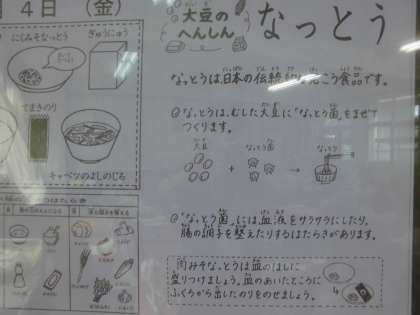 4日（金）
にくみそなっとう
ぎゅうにゅう
てまきのり
キャベツのみそしる
大豆の
へんしん
なっとう
なっとうは、日本の伝統的なけんこう食品です。
なっとうは、むした大豆に「なっとう菌」をまぜて
つくります。
大豆
なっとう菌
なっとう
+
→
"なっとう菌"には、血液をサラサラにしたり、
腸の調子を整えたりするはたらきがあります。
肉みそなっとうは皿のはしに
盛りつけましょう。皿のあいたところに
ふくろから出したのりをのせましょう。